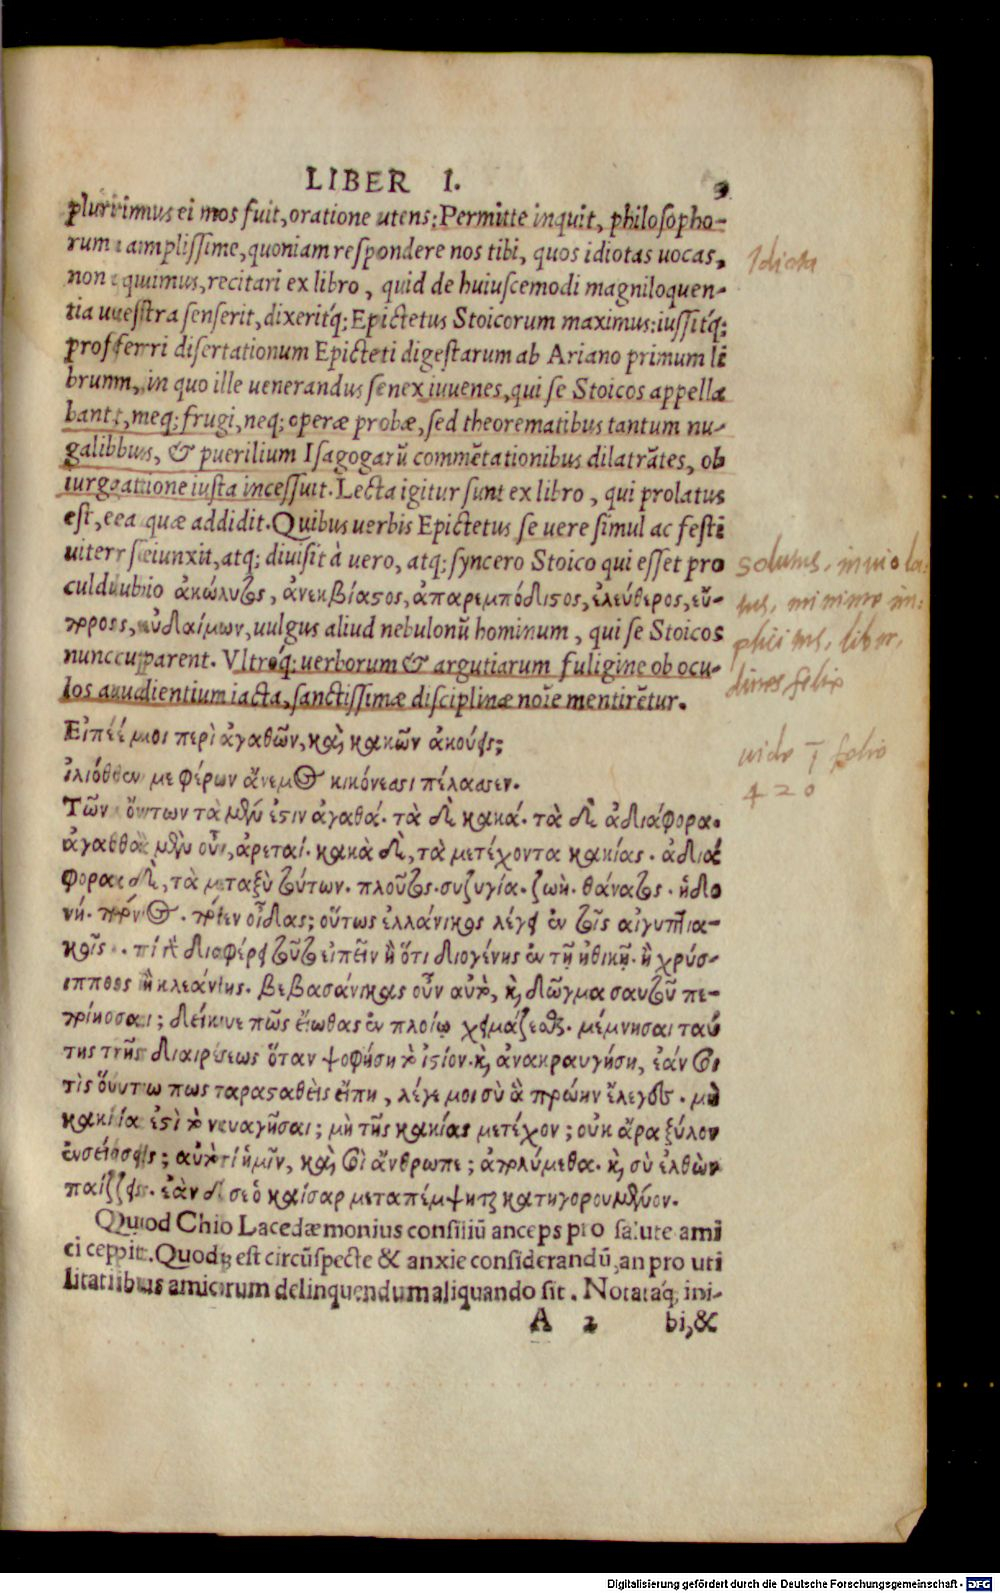 LIBER I.
plurimus ei mos fuit, oratione utens: Permitte inquit, philosopho-
rum amplissime, quoniam respondere nos tibi, quos idiotas uocas,
non quimus, recitari ex libro, quid de huiuscemodi magniloquen-
tia uestra senserit, dixeritq́;  Epictetus Stoicorum maximus: iussitq́;
proferri disertationum Epicteti digestarum ab Ariano primum li
brum, in quo ille uenerandus senex iuuenes, qui se Stoicos appella
bant, neq; frugi, neq; operæ probæ, sed theorematibus tantum nu-
galibus, & puerilium Isagogarū commētationibus dilatrātes, ob
iurgatione iusta incessuit. Lecta igitur sunt ex libro, qui prolatus
est, ea quæ addidit. Quibus uerbis Epictetus se uere simul ac festi
uiter seiunxit, atq; diuisit à uero, atq; syncero Stoico qui esset pro
culdubio ἀκώλυτος, ἀνεκβίαστος, ἀπαρεμπόδιστος, ἐλεύθερος, εὔ-
προς, εὐδαίμων, uulgus aliud nebulonū hominum, qui se Stoicos
nuncuparent. Vltroq́; uerborum & argutiarum fuligine ob ocu-
los audientium iacta, sanctissimæ disciplinæ noīe mentirētur.
Εἰπέ μοι περὶ ἀγαθῶν, καὶ κακῶν ἀκούεις;
ἰλιόθεν με φέρων ἄνεμος κικόνεασι πέλασεν.
Τῶν ὄντων τὰ μὲν ἐστιν ἀγαθά. τὰ δὲ κακά. τὰ δὲ ἀδιάφορα.
ἀγαθὰ μὲν οὖν, ἀρεταί. κακὰ δὲ, τὰ μετέχοντα κακίας. ἀδιά
φορα δὲ, τὰ μεταξὺ τούτων. πλοῦτος. συζυγία. ζωὴ. θάνατος. ἡδο
νή. πόνος. πόθεν οἶδας; οὕτως ἑλλάνικος λέγει ἐν τοῖς αἰγυπτια-
κοῖς. τί γὰρ διαφέρει τοῦτο εἰπεῖν ἢ ὅτι διογένης ἐν τῇ ἠθικῇ. ἢ χρύσ-
ιππος ἢ κλεάνθης. βεβασάνικας οὖν αὐτὸ, καὶ δῶγμα σαυτοῦ πε-
ποίησαι; δείκνυε πῶς εἴωθας ἐν πλοίῳ χειμάζεσθαι. μέμνησαι ταύ
της τῆς διαιρέσεως ὅταν ψοφήση τὸ ἱστίον. καὶ ἀνακραυγήση, ἐάν σοι
τὶς οὕτω πως παρασταθεὶς εἴπη, λέγε μοι σὺ ἃ πρώην ἔλεγες. μὴ
κακία ἐστὶ τὸ ναυαγῆσαι; μὴ τῆς κακίας μετέχον; οὐκ ἄρα ξύλον
ἐνσείσεις; αὐτὸ τί ἡμῖν, καὶ σοὶ ἄνθρωπε; ἀπολύμεθα. καὶ σὺ ἐλθὼν
παίζεις. ἐὰν δὲ σε ὁ καίσαρ μεταπέμψηται κατηγορουμένον.
Quod Chio Lacedæmonius consiliū anceps pro salute ami
ci cepit. Quodq; est circūspecte & anxie considerandū, an pro uti
litatibus amicorum delinquendum aliquando sit. Notataq́; ini-
A 2 bi, &
Idiota
solutus, inuiola:
tus, minime im:
plicitus, liber,
diues felix
uide T folio
420
Digitalisierung gefördert durch die Deutsche Forschungsgemeinschaft - DFG